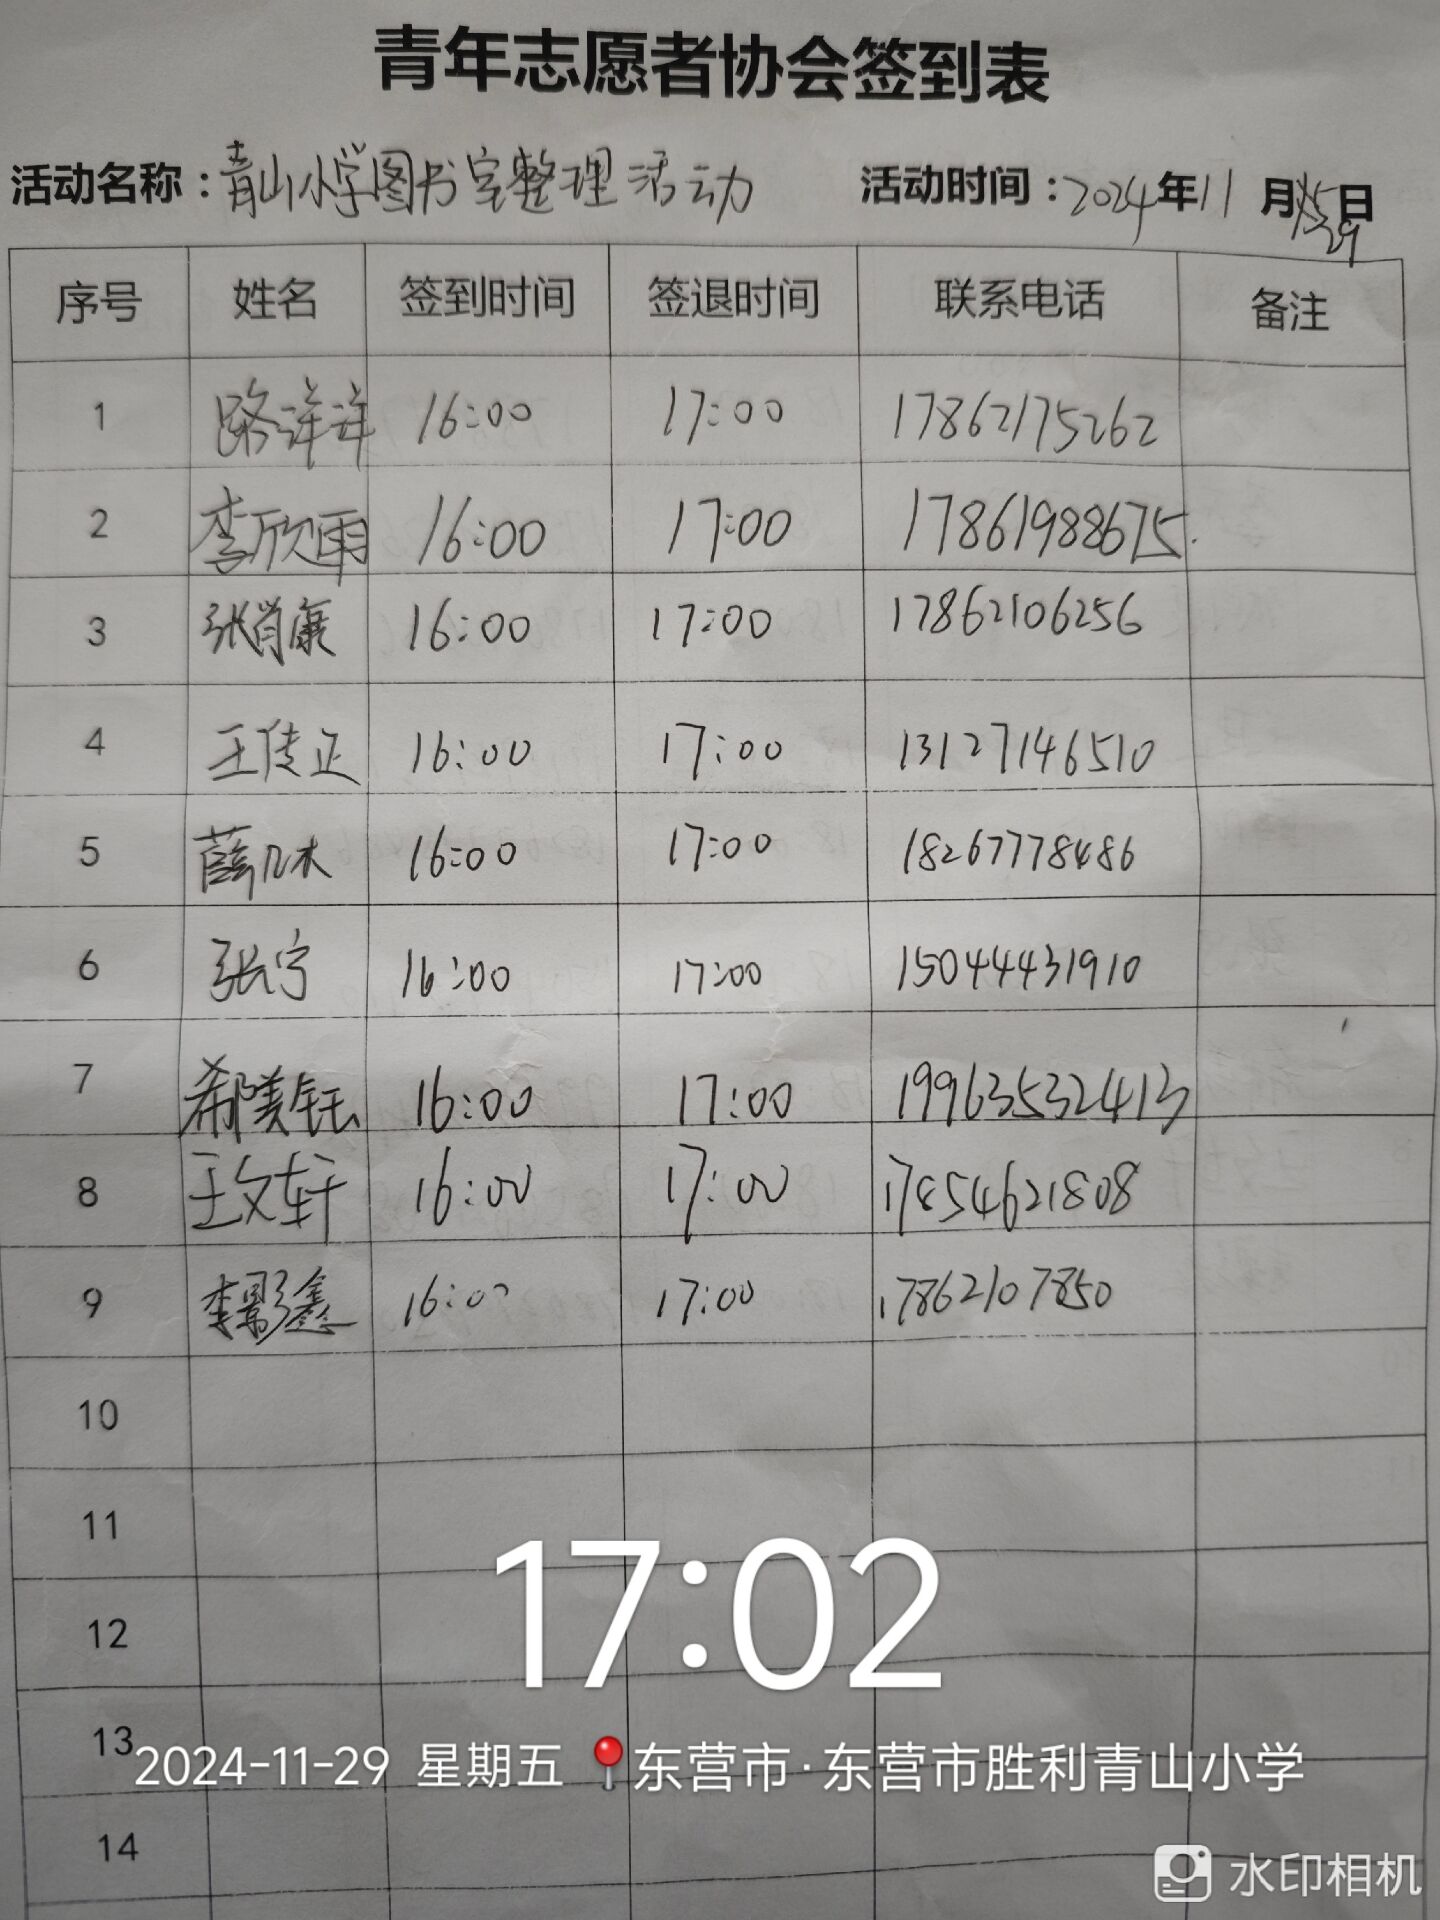 青年志愿者协会签到表
活动名称：青山小学图书室整理活动 活动时间：2024年11月29日
序号 姓名 签到时间 签退时间 联系电话 备注
1 路洋洋 16:00 17:00 17862175262
2 李欣雨 16:00 17:00 17861988675.
3 张肖康 16:00 17:00 17862106256
4 王传正 16:00 17:00 13127146510
5 薛凡木 16:00 17:00 18267778486
6 张宁 16:00 17:00 15044431910
7 郗美钰 16:00 17:00 19963532413
8 王文轩 16:00 17:00 17854621808
9 李影鑫 16:00 17:00 17862107850
10
11
12
13
14
17:02
2024-11-29 星期五 东营市·东营市胜利青山小学
水印相机